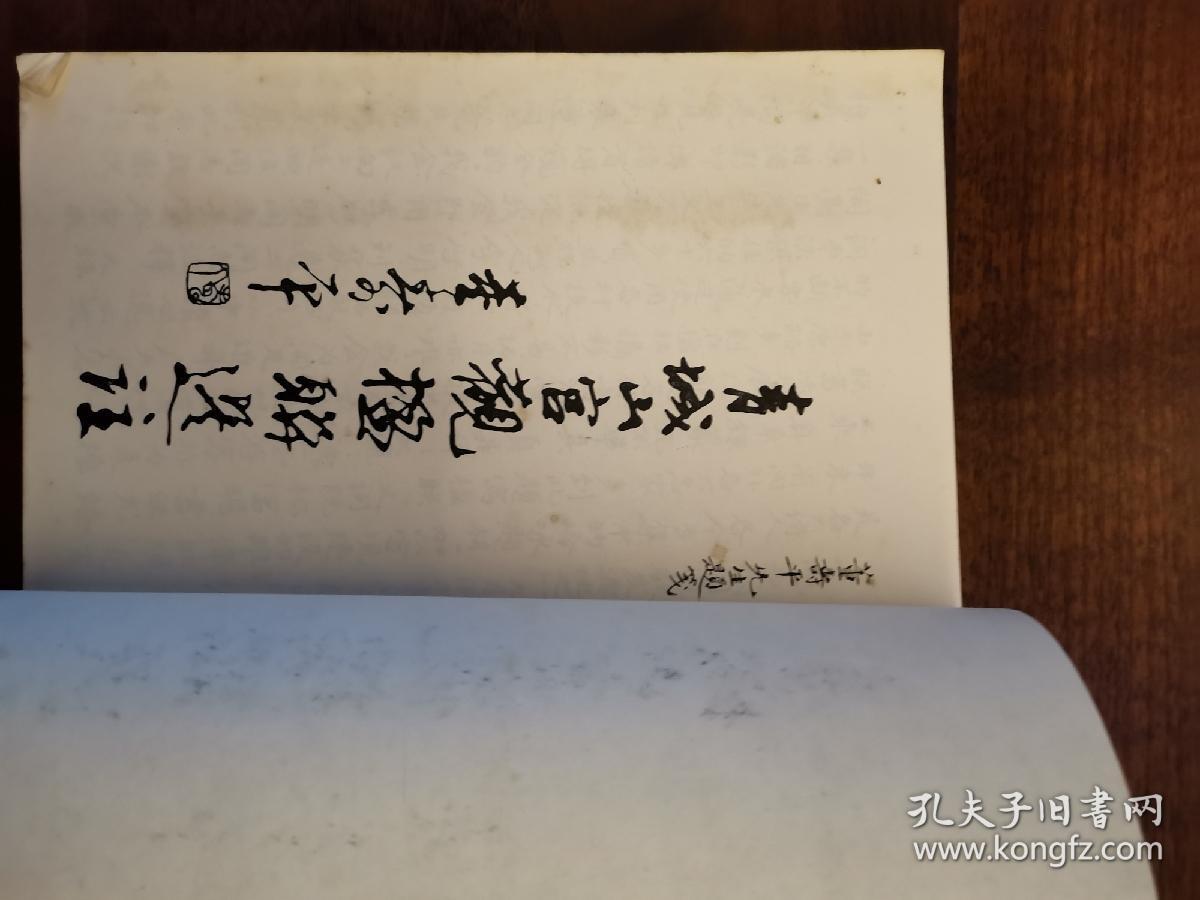 青城山宫观楹联选注
董寿平
董寿平先生题笺
孔夫子旧书网
www.kongfz.com